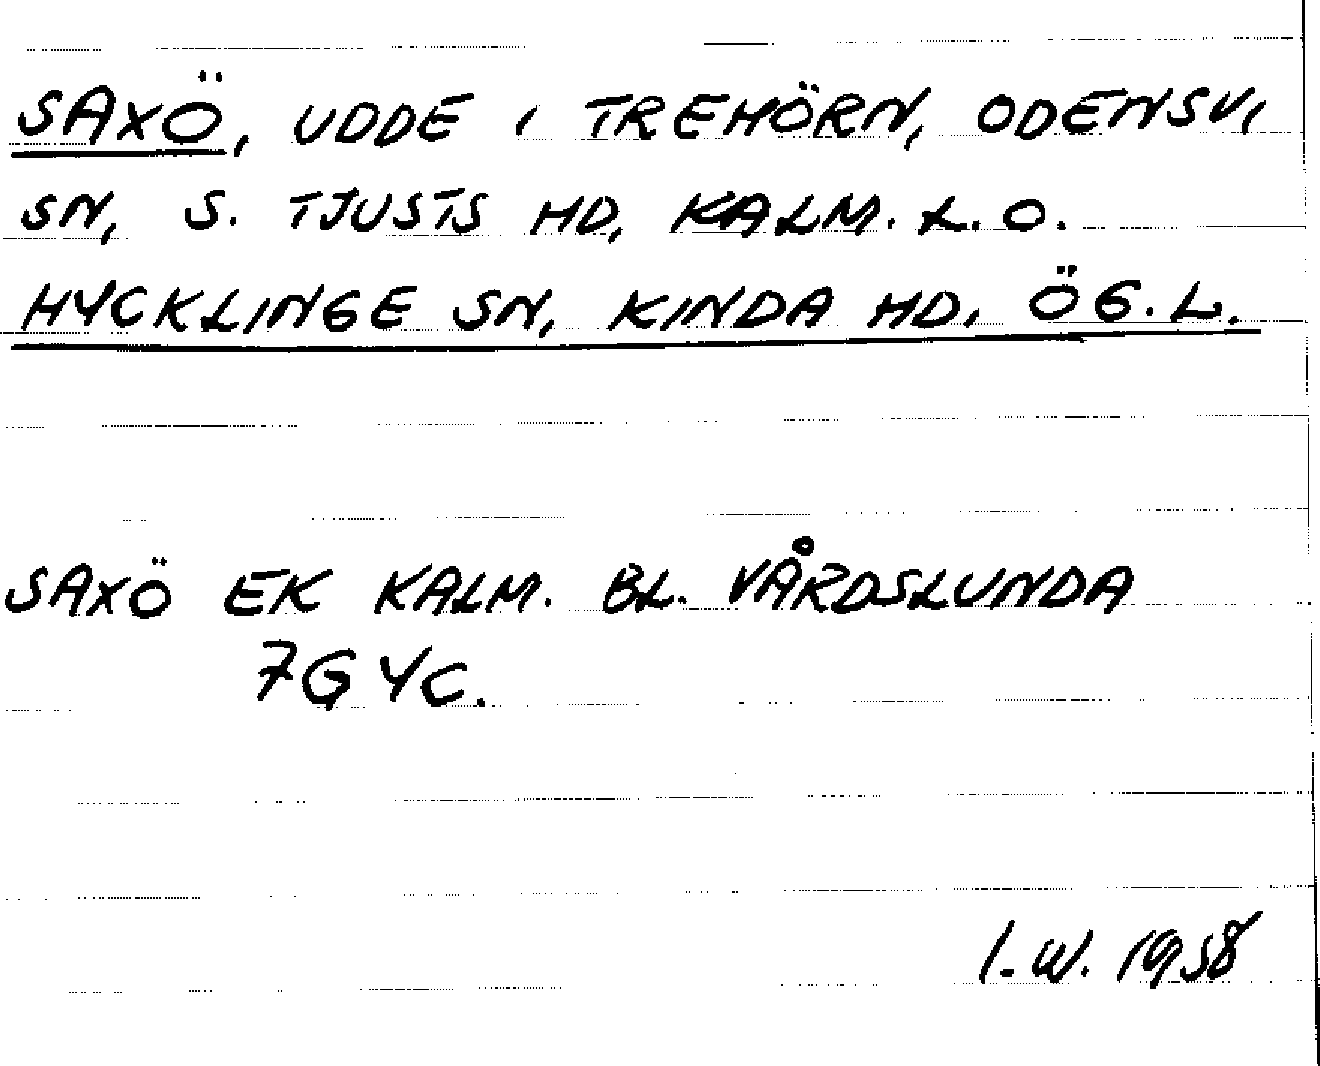 SAXÖ, UDDE I TREHÖRN, ODENSVI
SN, S. TJUSTS HD, KALM. L. O.
HYCKLINGE SN, KINDA HD, ÖG. L.
SAXÖ EK KALM. BL. VÅRDSLUNDA
7G 4C.
I. W. 1958